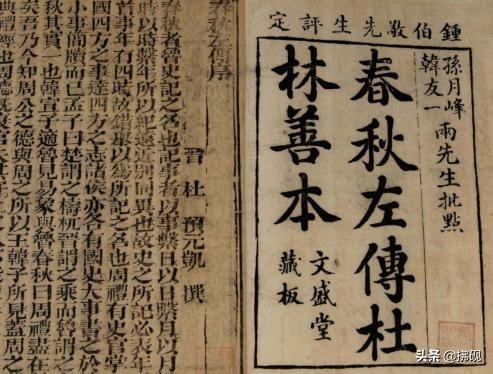 鍾伯敬先生評定
孫月峰
韓友一
兩先生批點
春秋左傳杜
林善本
文盛堂
藏板
春秋左傳序
晉 杜 預元凱 撰
春秋者魯史記之名也記事者以事繫日以日繫月以月
以時繫年所以紀遠近別同異也故史之所記必表年
首事年有四時故錯舉以為所記之名也周禮有史官掌
國四方之事達四方之志諸侯亦各有國史大事書之於
小事簡牘而已孟子曰楚謂之檮杌晉謂之乘而魯謂之
秋其實一也韓宣子適魯見易象與魯春秋曰周禮盡在
矣吾乃今知周公之德與周之所以王韓子所見蓋周之
典禮經也周德既衰官失其守
頭条 @捞砚